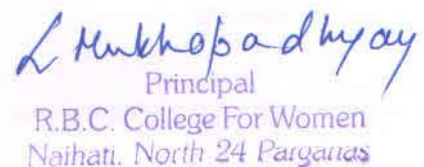 L Mukhopadhyay
Principal
R.B.C. College For Women
Naihati, North 24 Parganas